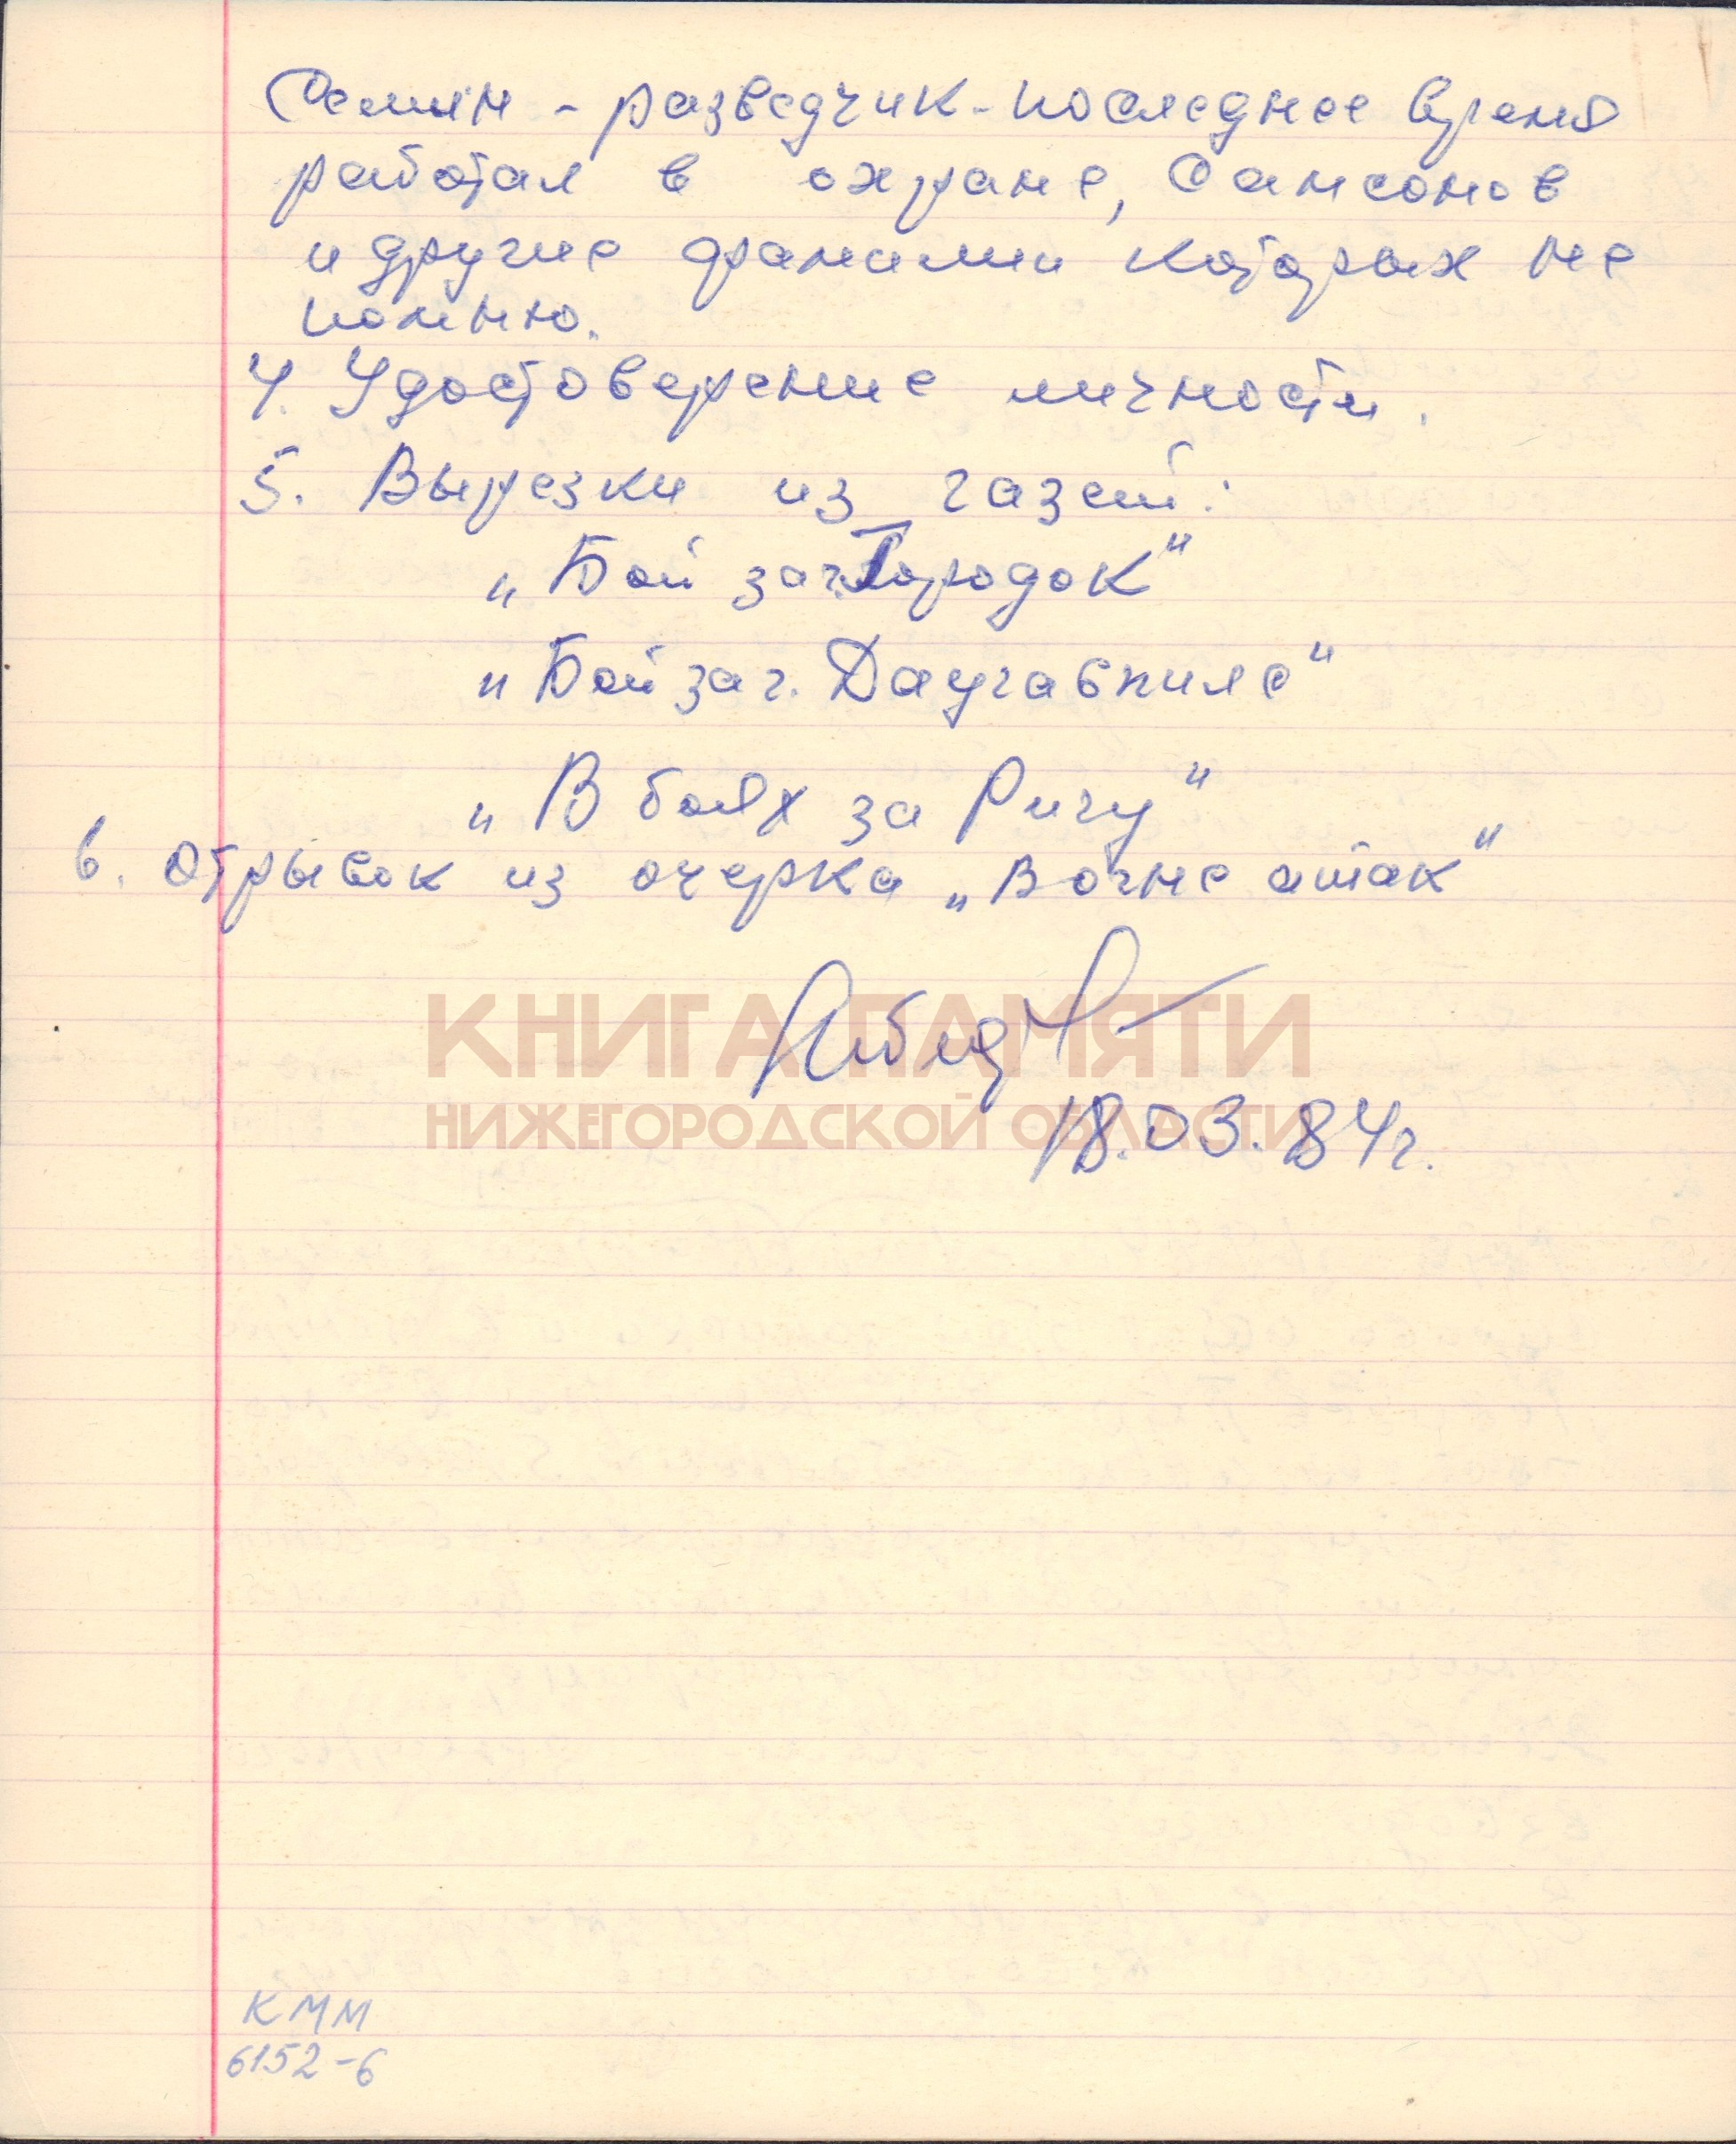 Семин - разведчик - последнее время
работал в охране, Самсонов
и другие фамилии которых не
помню.
4. Удостоверение личности.
5. Вырезки из газет:
„Бой за г. Городок"
„Бой за г. Даугавпилс"
„В боях за Ригу"
6. Отрывок из очерка „В огне атак"
КНИГА ПАМЯТИ
НИЖЕГОРОДСКОЙ ОБЛАСТИ
18.03.84г.
КММ
6152-6